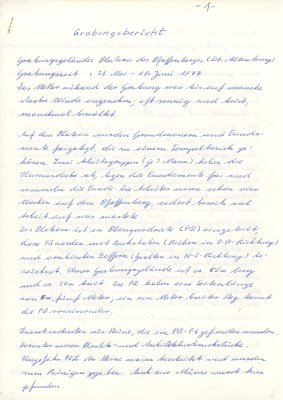 -1-
Grabungsbericht
Grabungsgelände: Plateau des Pfaffenberges (Bd. Altenburg)
Grabungszeit = 21. Mai - 28. Juni 1977
Das Wetter während der Grabung war bis auf manche
starke Winde angenehm, oft sonnig und heiß,
manchmal bewölkt.
Auf dem Plateau wurden Grundmauern und Funda-
mente freigelegt, die zu einem Tempelbezirk ge-
hören. Zwei Arbeitsgruppen (je 3 Mann) heben die
Humusdecke ab, legen die Fundamente frei und
sammeln die Funde. Die Arbeiter waren schon vier
Wochen auf dem Pfaffenberg, sodaß
Arbeit auf uns wartete.
Das Plateau ist in Planquadrate (PQ) eingeteilt,
diese PQ werden mit Buchstaben (Reihen in O-W-Richtung)
und arabischen Ziffern (Spalten in N-S-Richtung) be-
zeichnet. Unser Grabungsgelände ist ca. 80m lang
und ca. 50m breit. Die PQ haben eine Seitenlänge
von fünf Meter, ein ein Meter breiter Steg trennt
die PQ voneinander.
Zuerst sortierten wir Steine, die im PQ-F6 gefunden wurden,
darunter waren Plastik- und Architekturbruchstücke.
Ungefähr 70% der Steine waren bearbeitet und wurden
zum Reinigen gegeben. Auch eine Münze wurde hier
gefunden.